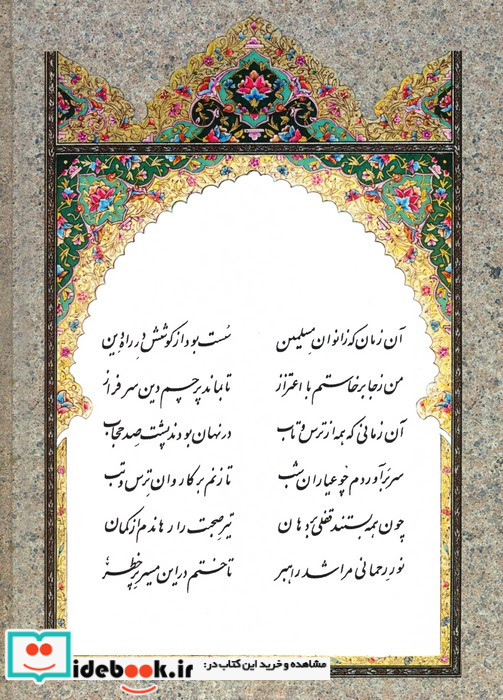 آن زمان که زانوان مسلمین سست بود از کوشش در راه دین
من ز جا برخاستم با اعتزاز تا بماند پرچم دین سرفراز
آن زمانی که همه از ترس و تاب در نهان بودند پشت صد حجاب
سر برآوردم چو عیاران شب تا زنم بر کاروان ترس و تب
چون همه بستند قفلی بر دهان تیر صحبت را رهاندم از کمان
نور رحمانی مرا شد راهبر تاختم در این مسیر پر خطر
مشاهده و خرید این کتاب در:
idebook.ir